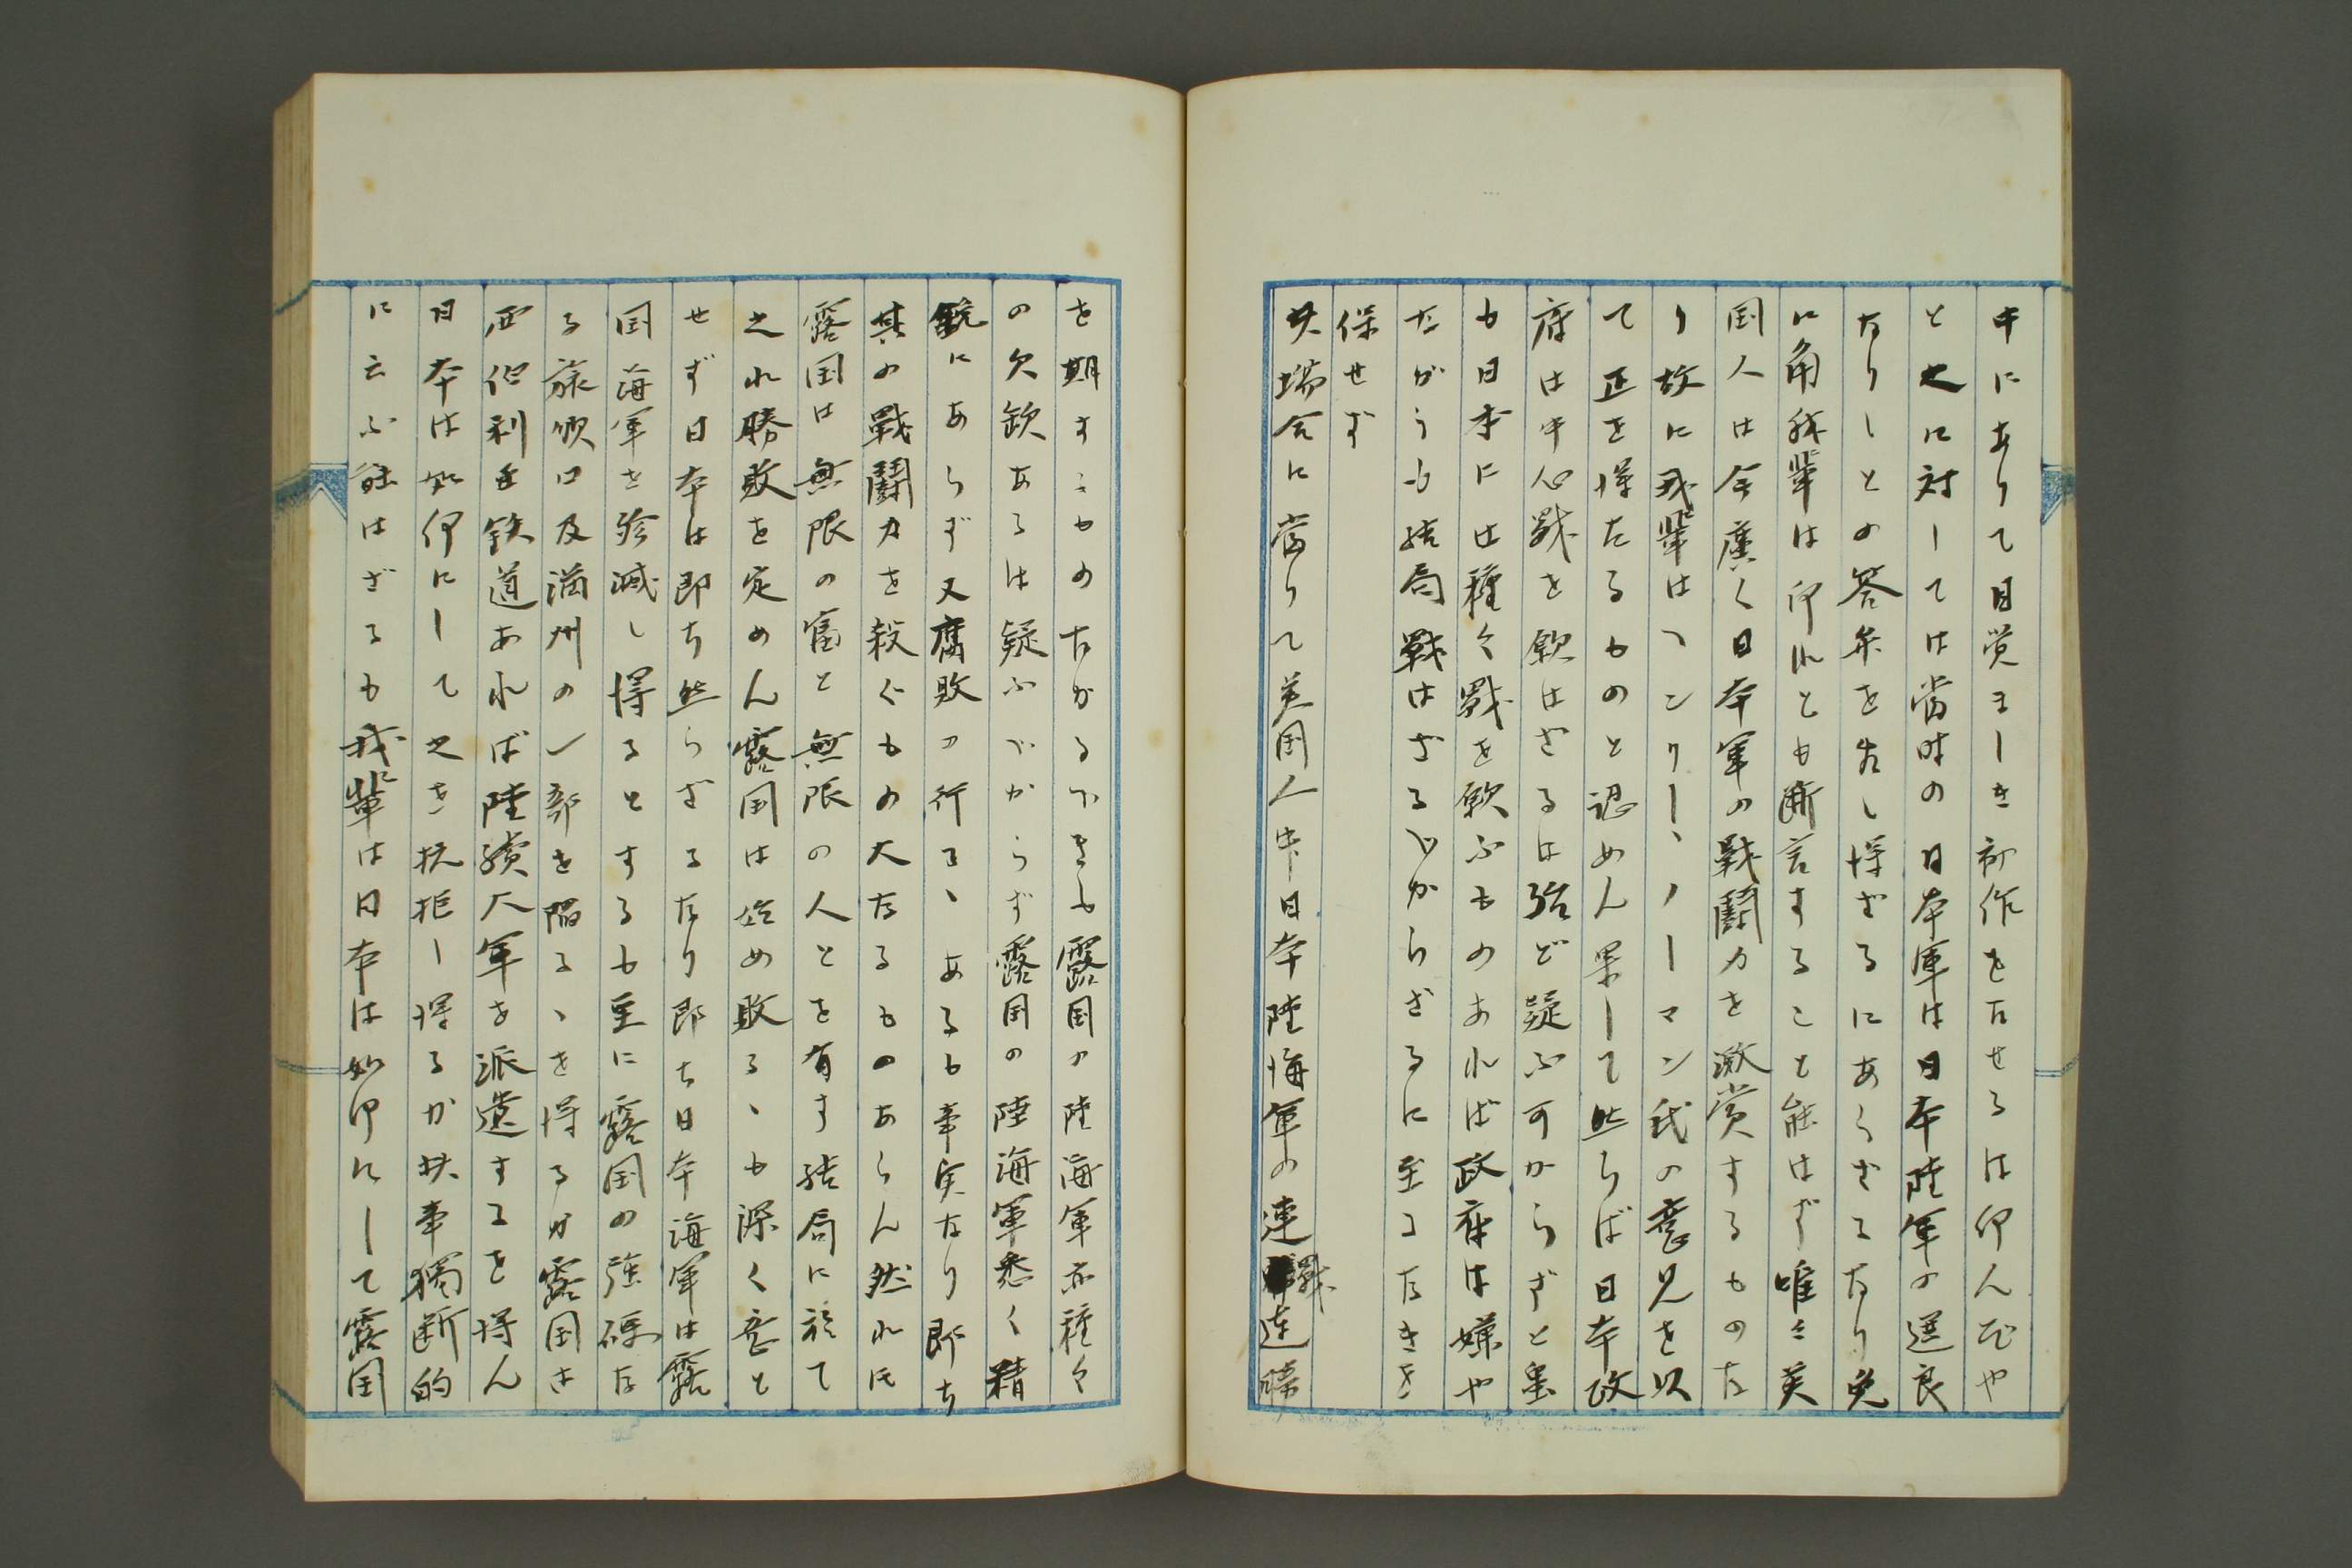 中にありて目覚ましき動作をなせるは何んぞや
と之に対しては当時の日本軍は日本陸軍の選良
なりしとの答弁を為し得ざるにあらざるなり兎
に角我輩は何れとも断言すること能はず唯々英
国人は今廣く日本軍の戦闘力を激賞するものな
り故に我輩はヘンリー、ノーマン氏の意見を以
て正を得たるものと認めん果して然らば日本政
府は中心戦を欲はざるは殆ど疑ふ可からずと雖
も日本には種々戦を欲ふものあれば政府は嫌や
ながらも結局戦はざるべからざるに至るなきを
保せず
其場合に当りて英国人中日本陸海軍の連戦連勝
を期するものなかるべきも露国の陸海軍亦種々
の欠欽あるは疑ふべからず露国の陸海軍悉く精
鋭にあらず又腐敗の行るゝあるも事実なり即ち
其の戦闘力を殺ぐもの大なるものあらん然れ共
露国は無限の富と無限の人とを有す結局に於て
之れ勝敗を定めん露国は始め敗るゝも深く意と
せず日本は即ち然らざるなり即ち日本海軍は露
国海軍を殄滅し得るとするも更に露国の強硬な
る旅順口及満州の一部を陥るゝを得るか露国は
西伯利亜鉄道あれば陸続大軍を派遣するを得ん
日本は如何にして之を抗拒し得るか其事獨断的
に云ふ能はざるも我輩は日本は如何にして露国